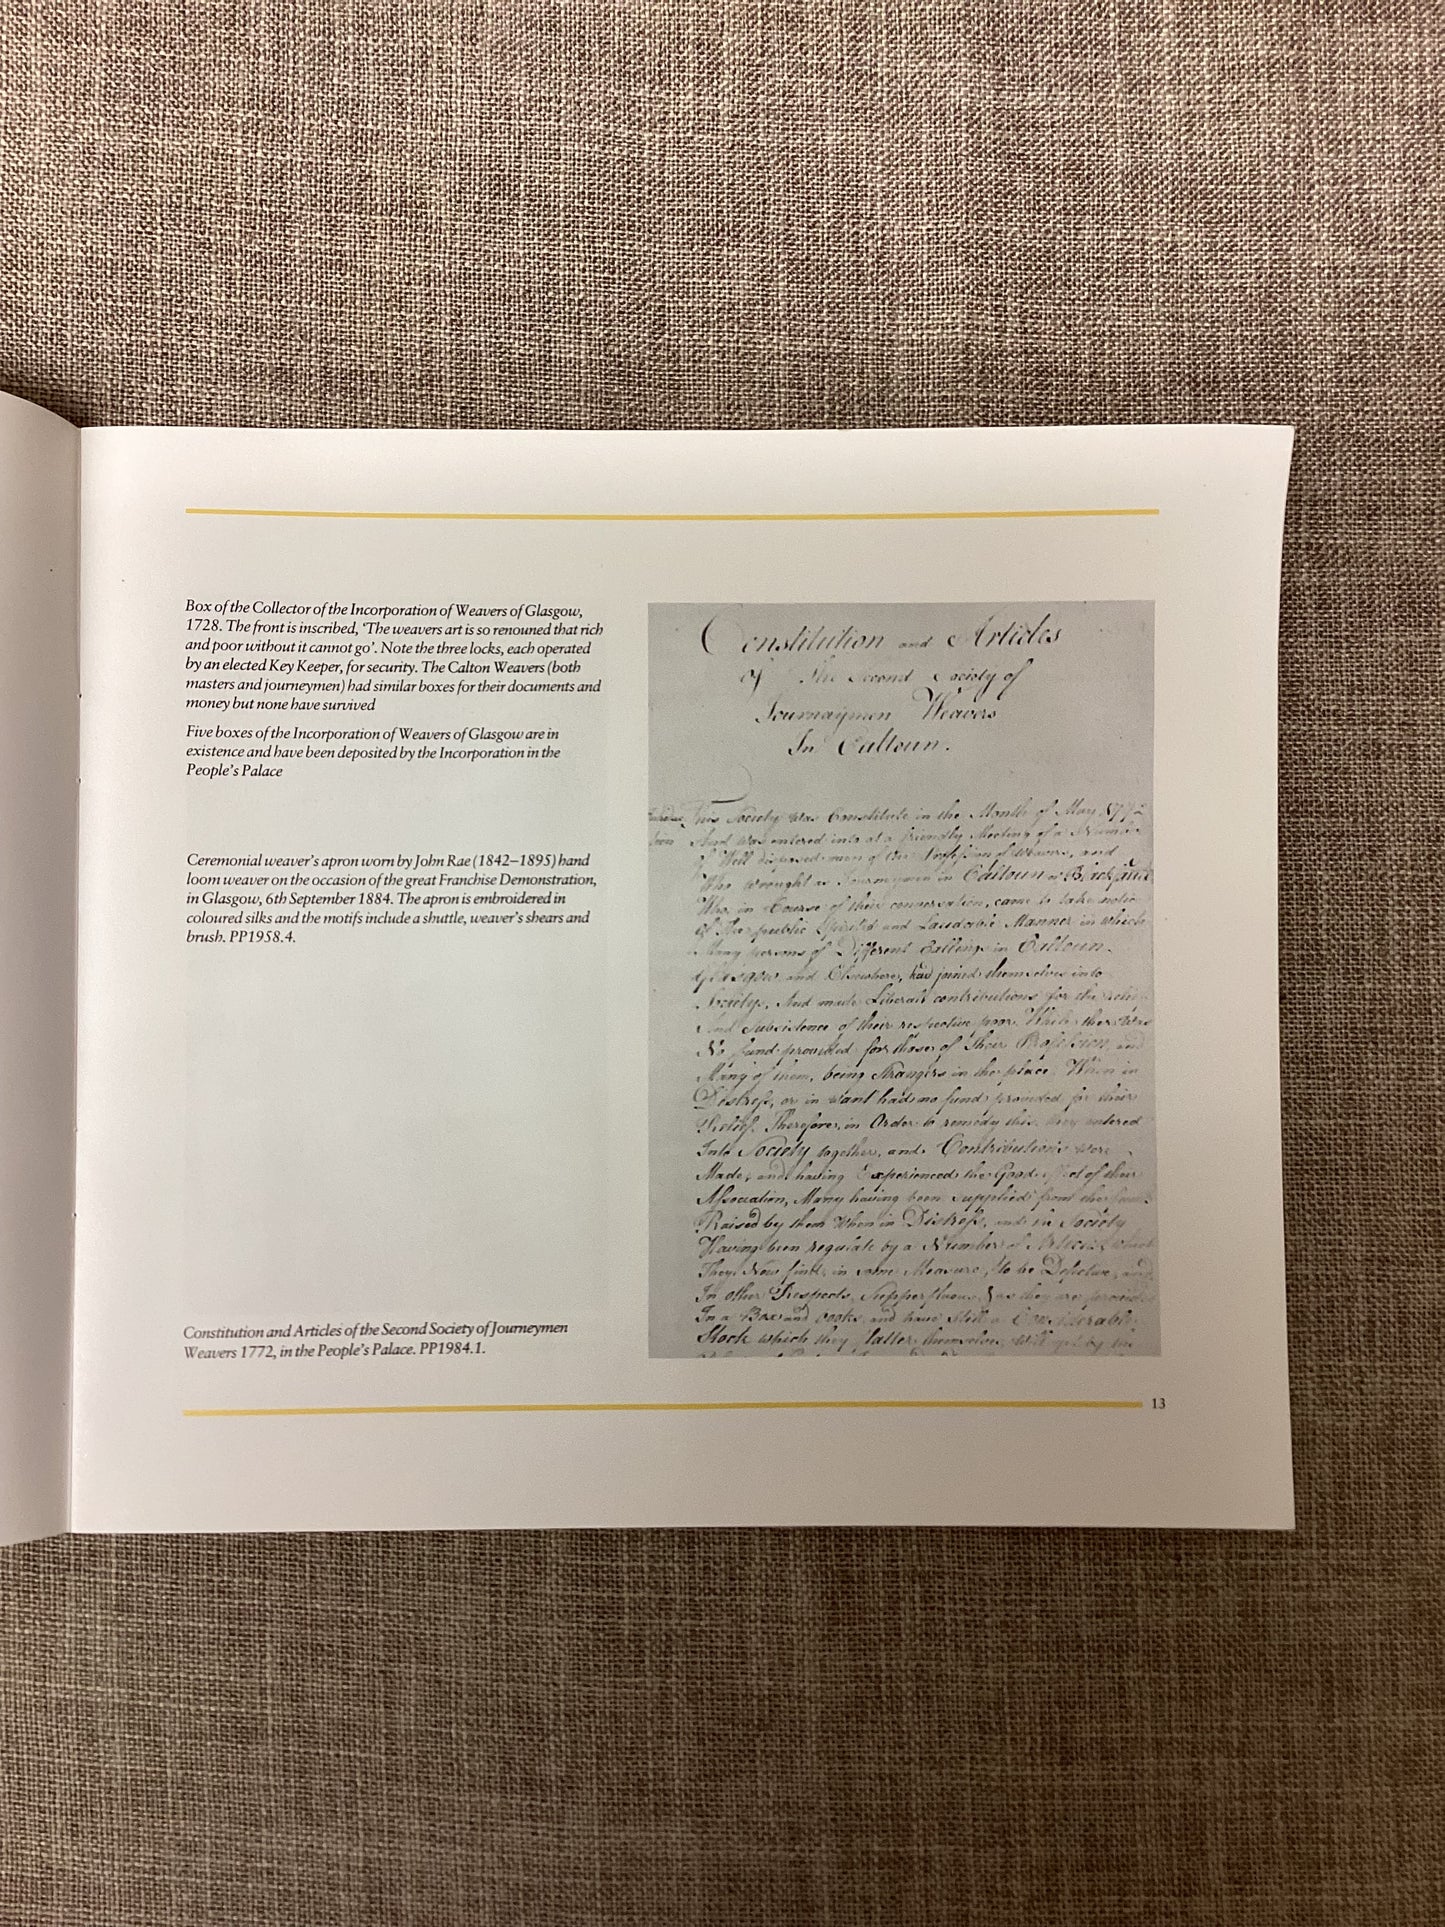 Box of the Collector of the Incorporation of Weavers of Glasgow,
1728. The front is inscribed, ‘The weavers art is so renouned that rich
and poor without it cannot go’. Note the three locks, each operated
by an elected Key Keeper, for security. The Calton Weavers (both
masters and journeymen) had similar boxes for their documents and
money but none have survived
Five boxes of the Incorporation of Weavers of Glasgow are in
existence and have been deposited by the Incorporation in the
People’s Palace
Ceremonial weaver’s apron worn by John Rae (1842–1895) hand
loom weaver on the occasion of the great Franchise Demonstration,
in Glasgow, 6th September 1884. The apron is embroidered in
coloured silks and the motifs include a shuttle, weaver’s shears and
brush. PP1958.4.
Constitution and Articles of the Second Society of Journeymen
Weavers 1772, in the People’s Palace. PP1984.1.
Constitution and Articles
of The Second Society of
Journaymen Weavers
In Caltoun.
This Society was Constitute in the Month of May 1772
And was entered into at a friendly Meeting of a Number
of Well disposed men of the Profession of weavers, and
Who wrought as Journeymen in Caltoun or
Who, in Course of their conversation, came to take notice
of The publick Spirited and Laudable Manner in which
Many persons of Different Callings in Caltoun.
Glasgow and Elsewhere, had joined themselves into
Society, And made Liberall contributions for the relief
And Subsistence of their respective poor. While there was
No fund provided for those of Their Profession, and
Many of them, being Strangers in the place. When in
Distress, or in want had no fund provided for their
Relief. Therefore, in Order to remedy this, they entered
Into Society together, and Contributions were
Made, and having Experienced the Good effect of their
Association, Many having been Supplied from the fund
Raised by them When in Distress, and in Society
Having been regulate by a Number of Articles, which
They Now find, in some Measure, to be Defective, and
In other Respects, Supperfluous, & as they are provided
In a Box and books, and have Still a Considerable
Stock which they latter themselves will yet by the
13